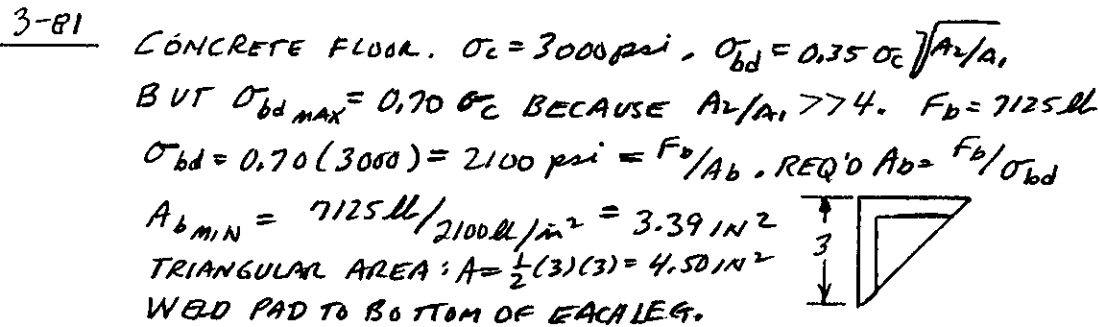 3-81
CONCRETE FLOOR. σc = 3000 psi, σbd = 0.35 σc √A2/A1
BUT σbd MAX = 0.70 σc BECAUSE A2/A1 >> 4. Fb = 7125 lb
σbd = 0.70 (3000) = 2100 psi = Fb/Ab. REQ'D Ab = Fb/σbd
Ab MIN = 7125 lb/2100 lb/in² = 3.39 IN²
3
TRIANGULAR AREA: A = ½(3)(3) = 4.50 IN²
WELD PAD TO BOTTOM OF EACH LEG.